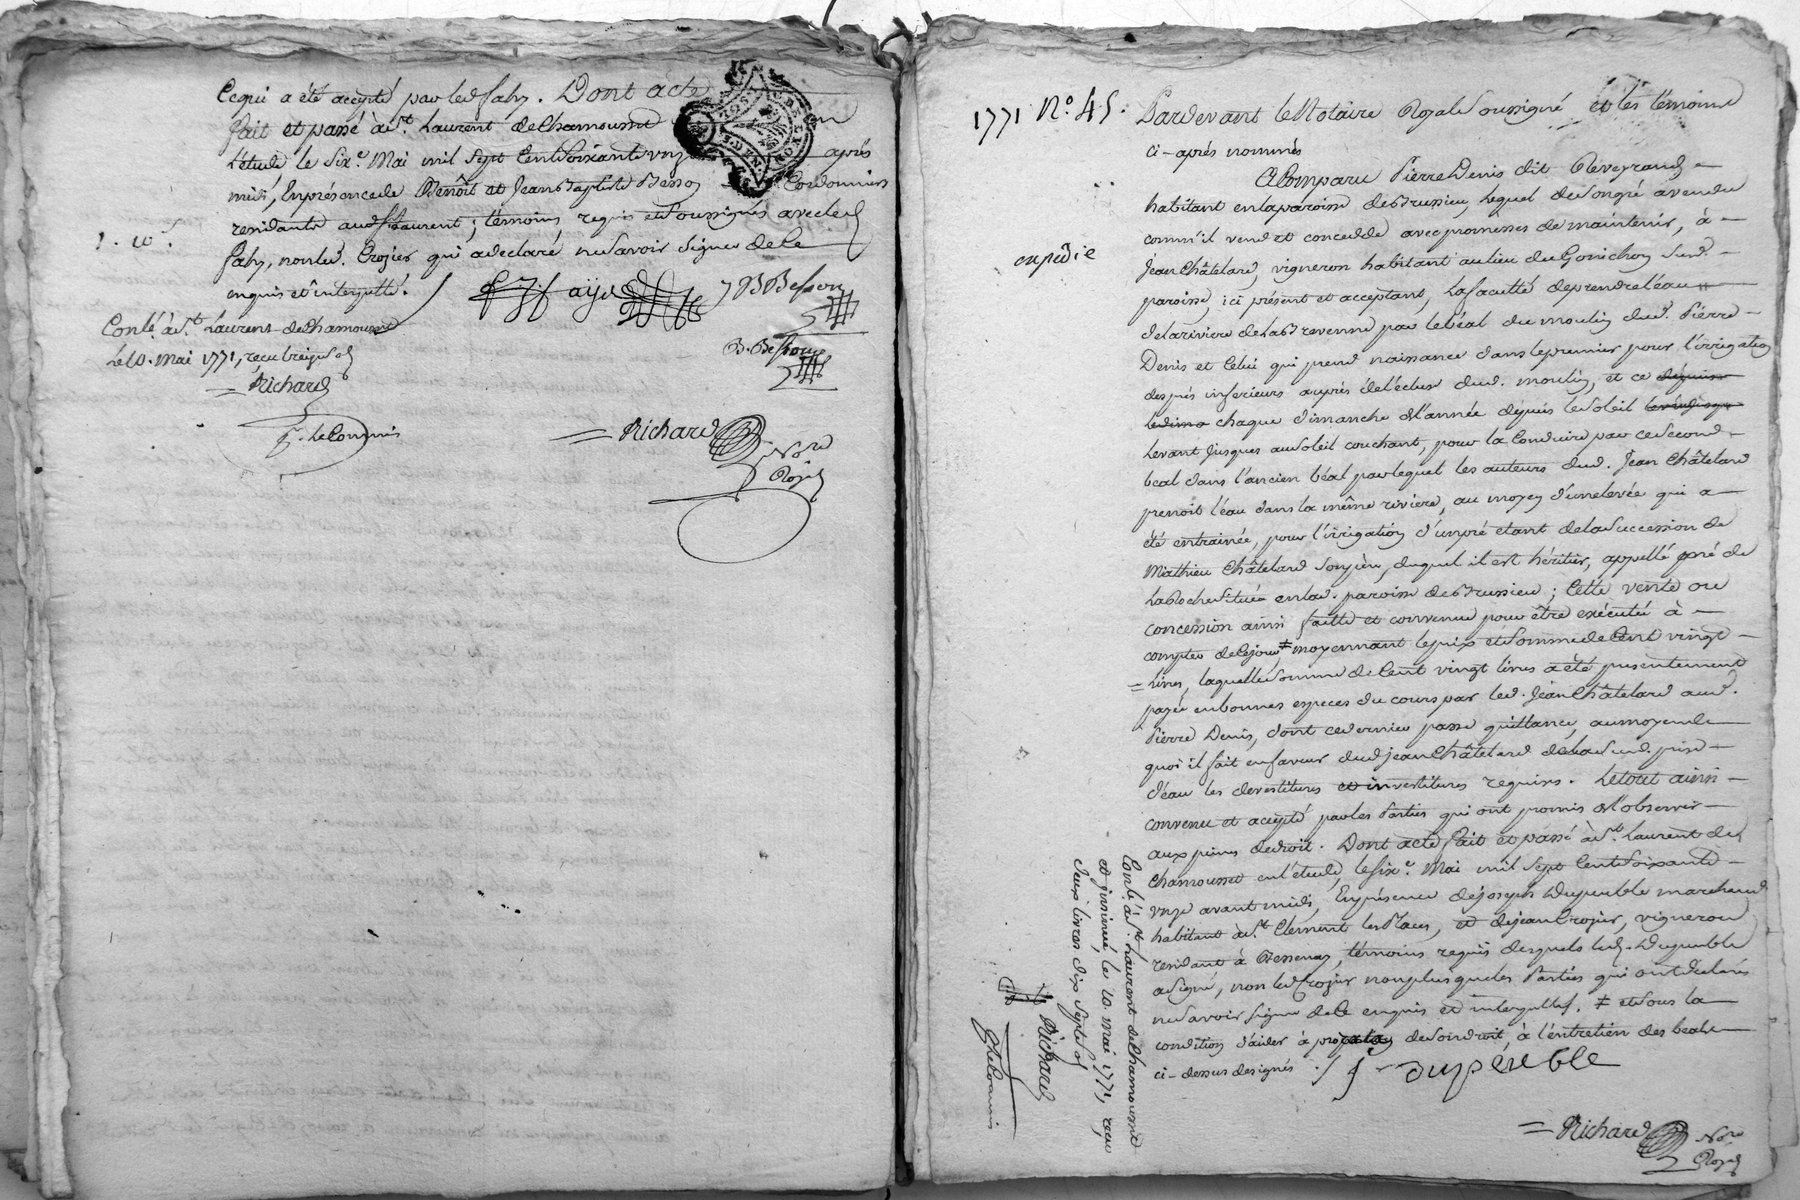 Ce qui a été accepté par led. fahy. Dont acte
fait et passé à St. Laurent de Chamousset en
l'étude le six.e Mai mil sept Cent soixante unze après
midi, En présence de Benoît et Jean Baptiste Besson Cordonniers
residants aud. St. Laurent; témoins requis et soussignés avec led.
fahy, non led. Crozier qui a declaré ne savoir signer de ce
enquis et interpellé.
J. f. fayet
B Besson
B. Besson
Conlé à St. Laurent de Chamousset
Le 10. Mai 1771, reçu treize sols
= Richard
p. le Commis
= Richard
Nore
Royal
1771 N.o 45.
Pardevant le Notaire Royal Soussigné et les témoins
ci-après nommés
A Comparu Pierre Denis dit Cleyrand
habitant en la paroisse de Brussieu, lequel de son gré a vendu
comm'il vend et concedde avec promesses de maintenir, à
Jean Châtelard, vigneron habitant au lieu du Gonichon sud.
paroisse, ici présent et acceptant, la faculté de prendre l'eau
de la riviere de la Brevenne par le béal du moulin dud. Pierre
Denis et Celui qui prend naissance dans le premier pour l'irrigation
des prés inferieurs auprés de l'écluse dud. moulin, et ce depuis
chaque dimanche de l'année depuis le soleil
Levant jusques au soleil couchant, pour la Conduire par ce second
béal dans l'ancien béal par lequel les auteurs dud. Jean Châtelard
prenoit l'eau dans la même riviere, au moyen d'une levée qui a
été entrainée, pour l'irrigation d'un pré etant de la Succession de
Mathieu Châtelard son père, duquel il est héritier, appellé pré de
La Roche situé en lad. paroisse de Brussieu; Cette vente ou
concession ainsi faitte et convenue pour être exécutée à
compter de ce jour, ≠ moyennant le prix et somme de Cent vingt
= livres, laquelle somme de Cent vingt livres a été presentement
payée en bonnes especes du cours par led. Jean Châtelard aud.
Pierre Denis, dont ce dernier passe quittance, au moyen de
quoi il fait en faveur dud. jean Châtelard de la Sud. prise
d'eau les devestitures et investitures requises. Le tout ainsi
convenu et accepté par les Parties qui ont promis de l'observer
aux peines de droit. Dont acte fait et passé à St. Laurent de
Chamousset en l'étude, le six.e Mai mil sept Cent soixante
unze avant midi, En présence de joseph Dupeuble marchand
habitant à St. Clement les Places, et de jean Crozier, vigneron
residant à Bessenay, témoins requis desquels led. Dupeuble
a signé, non led. Crozier non plus que les Parties qui ont déclarés
ne savoir signer de ce enquis et interpellés. ≠ et sous la
condition d'aider à de son droit, à l'entretien des beals
ci-dessus designés ./.
J - dupeuble
= Richard
Nore
Royal
expédié
Conlé à St. Laurent de Chamousset
et insinué, le 10. mai 1771, reçu
deux livres dix sept sols
Richard
p. le Commis